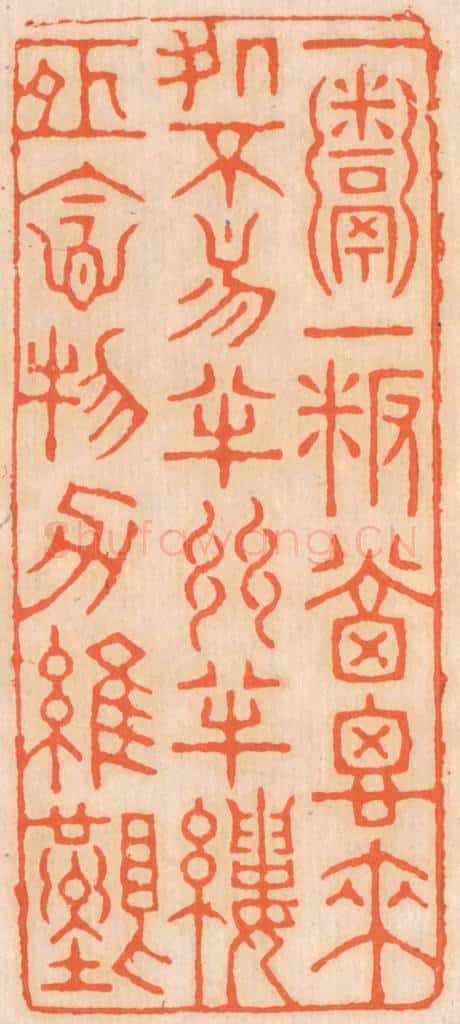 一粥一飯當思來
處不易半絲半縷
恆念物力維艱
Shufawang.CN